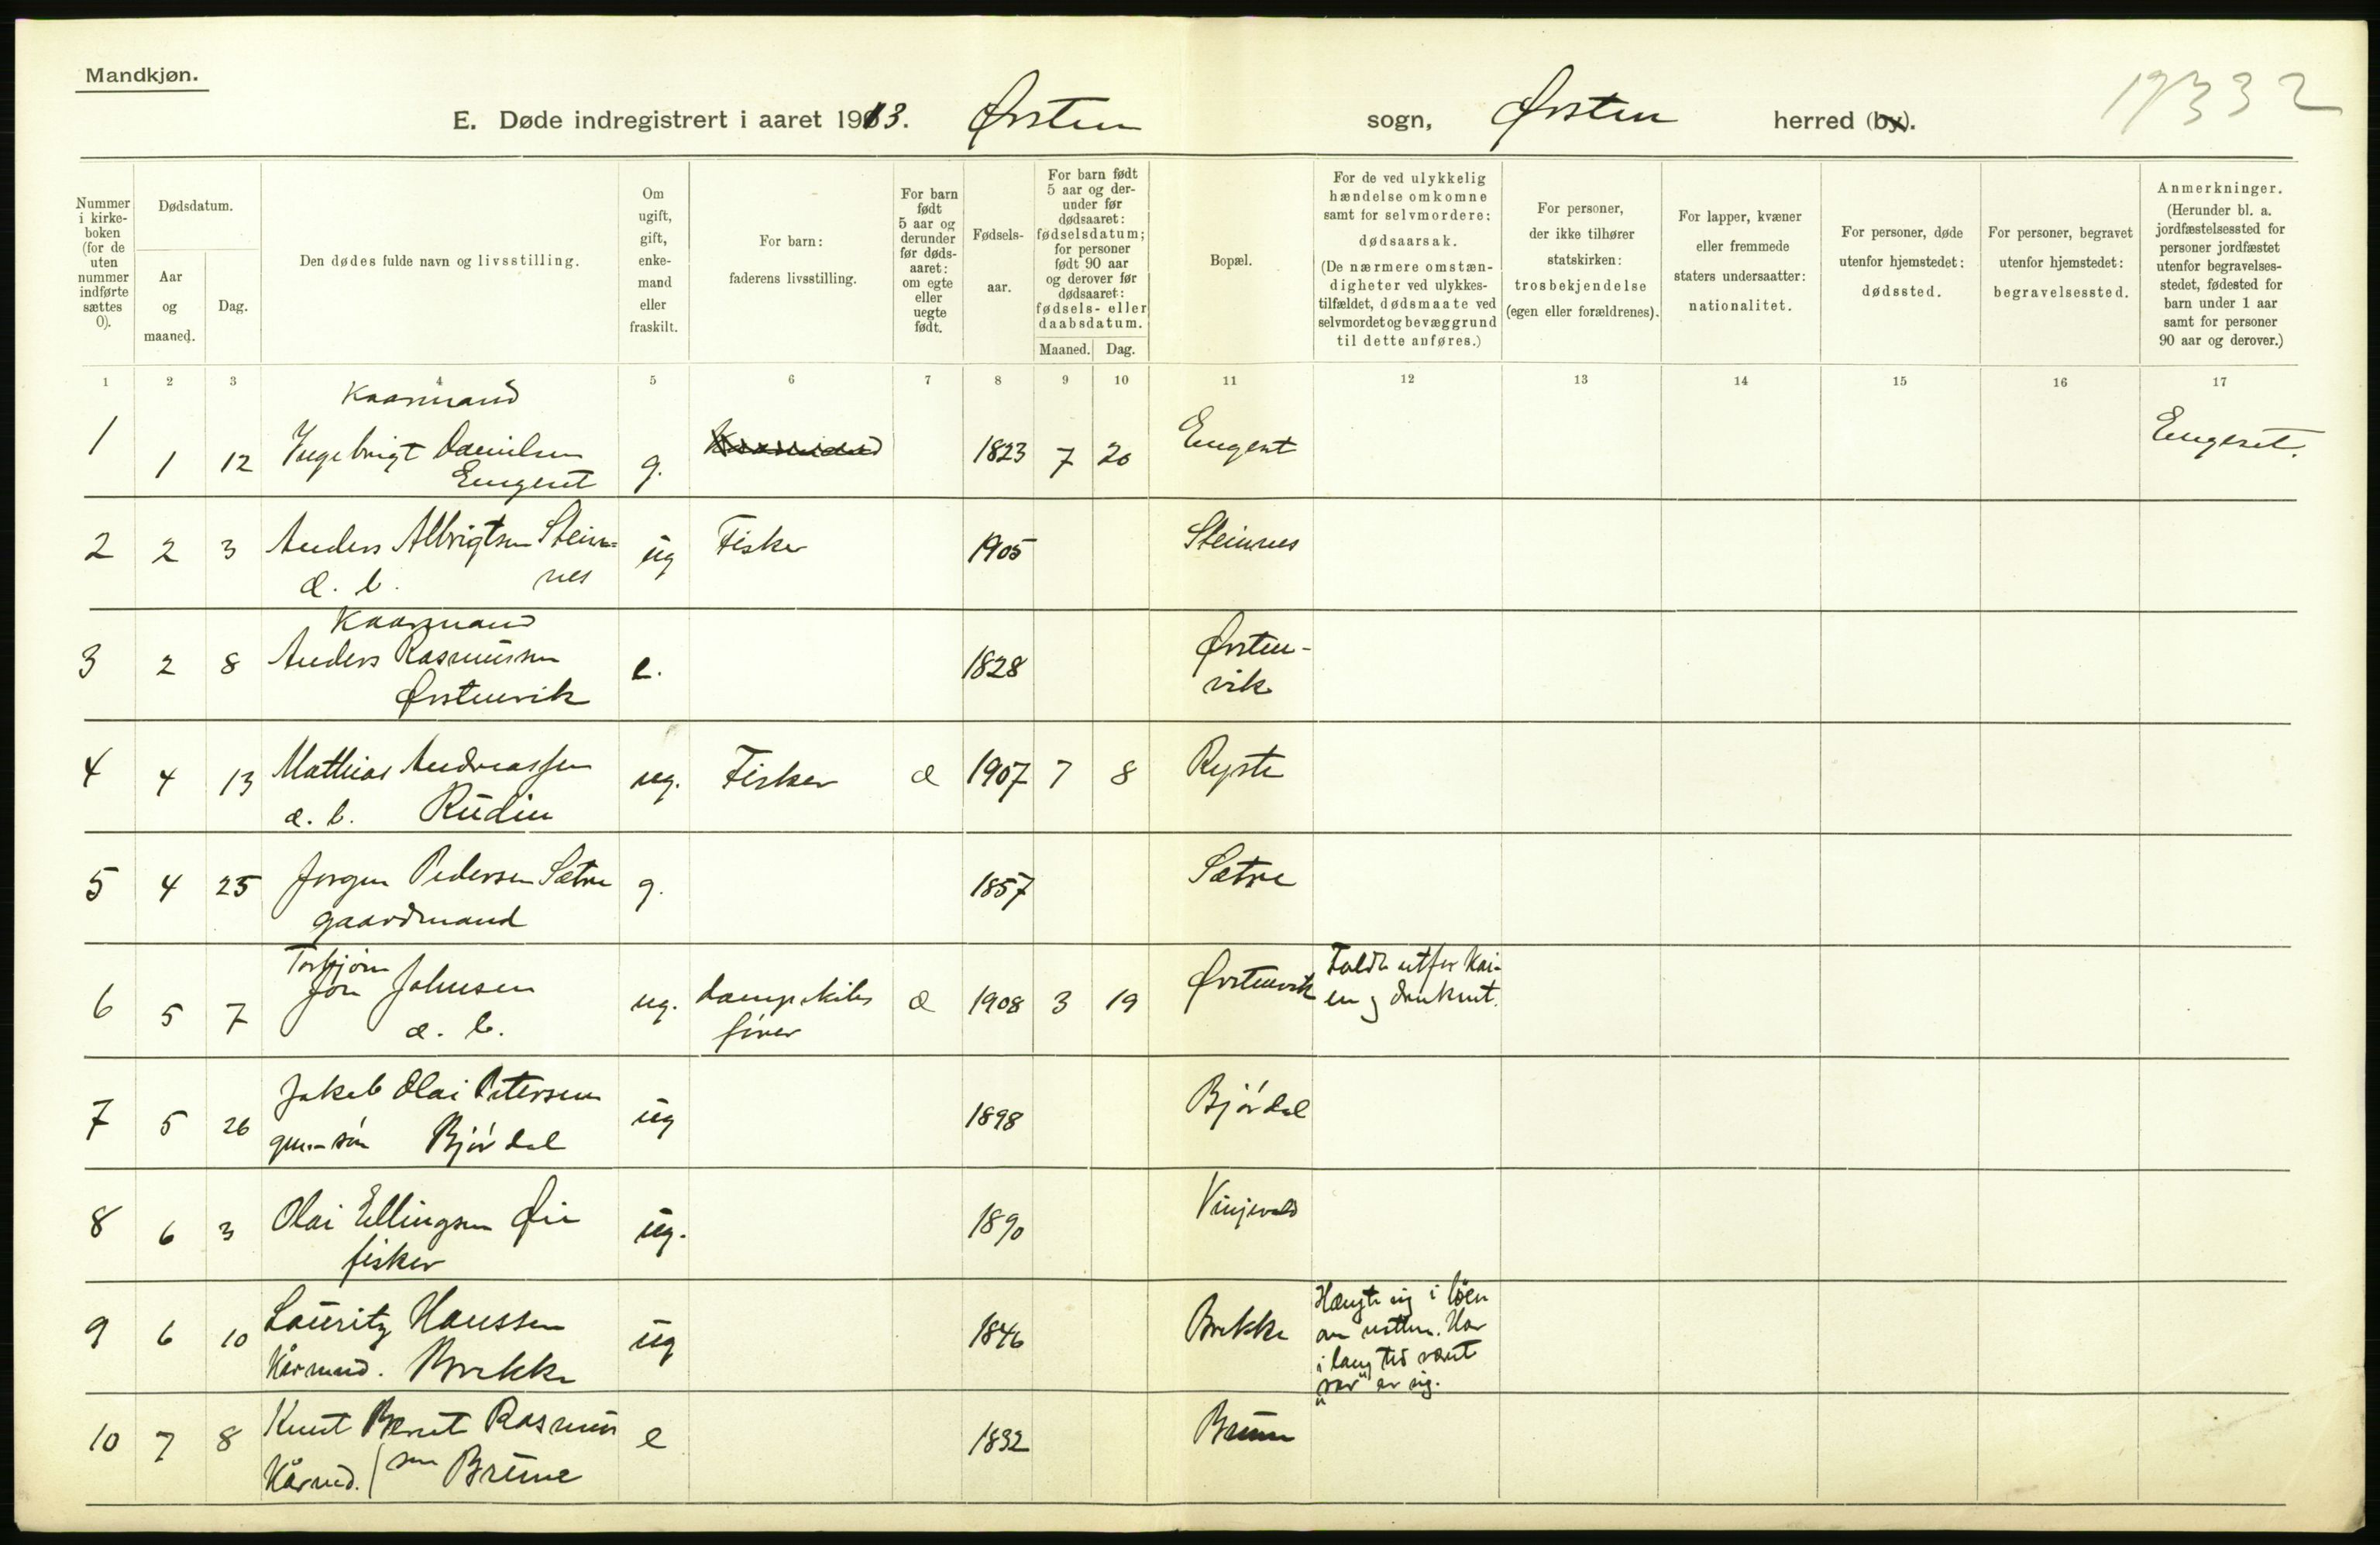 Mandkjøn.
E. Døde indregistrert i aaret 1913. Ørsten sogn, Ørsten herred (by).
17332
Nummer i kirkeboken (for de uten nummer indførte sættes 0).
Dødsdatum.
Aar og maaned.
Dag.
Den dødes fulde navn og livsstilling.
Om ugift, gift, enkemand eller fraskilt.
For barn: faderens livsstilling.
For barn født 5 aar og derunder før dødsaaret: om egte eller uegte født.
Fødselsaar.
For barn født 5 aar og derunder før dødsaaret: fødselsdatum; for personer født 90 aar og derover før dødsaaret: fødsels- eller daabsdatum.
Maaned. Dag.
Bopæl.
For de ved ulykkelig hændelse omkomne samt for selvmordere: dødsaarsak. (De nærmere omstændigheter ved ulykkestilfældet, dødsmaate ved selvmordet og bevæggrund til dette anføres.)
For personer, der ikke tilhører statskirken: trosbekjendelse (egen eller forældrenes).
For lapper, kvæner eller fremmede staters undersaatter: nationalitet.
For personer, døde utenfor hjemstedet: dødssted.
For personer, begravet utenfor hjemstedet: begravelsessted.
Anmerkninger. (Herunder bl. a. jordfæstelsessted for personer jordfæstet utenfor begravelsesstedet, fødested for barn under 1 aar samt for personer 90 aar og derover.)
1 2 3 4 5 6 7 8 9 10 11 12 13 14 15 16 17
Kaarmand
1 1 12 Ingebrigt Danilsen g. Kaarmand 1823 7 20 Engeset Engeset.
Engeset
2 2 3 Anders Albrigtsen Stein= ug Fisker 1905 Steinnes
æ. b. nes
Kaarmand
3 2 8 Anders Rasmussen e. 1828 Ørsten-
Ørstenvik vik
4 4 13 Mathias Andreassen ug. Fisker æ 1907 7 8 Ryste
æ. b. Rudin
5 4 25 Jorgen Pedersen Sætre g. 1857 Sætre
gaardmand
Torbjørn
6 5 7 Jon Johnsen ug. dampskibs æ 1908 3 19 Ørstenvik Faldt utfor Kai-
æ. b. fører en og druknet.
7 5 26 Jakob Olai Petersen ug 1898 Bjørdal
gm.-søn Bjørdal
8 6 3 Olai Ellingsen Øie ug. 1890 Vinjevold
fisker
9 6 10 Lauritz Hanssen ug 1846 Brekke Hængte sig i løen
Kårmand. Brekke om natten. Har
i lang tid været
"rar" av sig.
10 7 8 Knut Bernt Rasmus e 1832 Brune
Kårmd. sen Brune